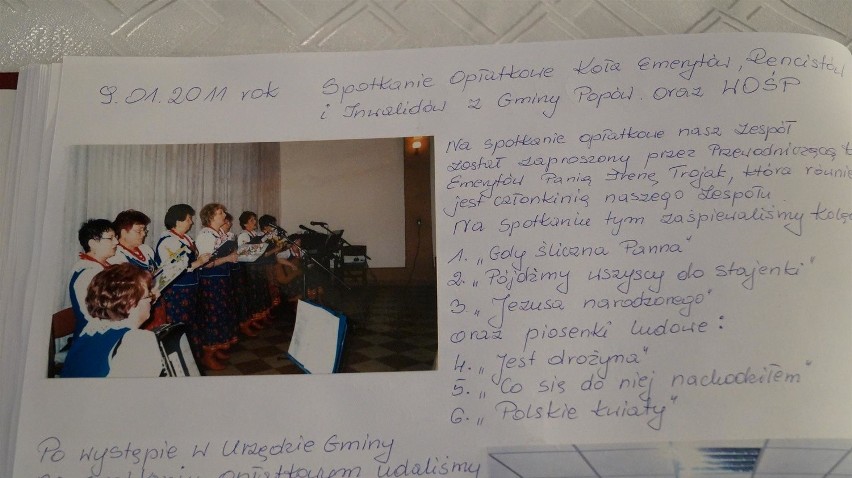 9.01.2011 rok
Spotkanie Opłatkowe Koła Emerytów, Rencistów
i Inwalidów z Gminy Popów. oraz WOŚP
Na spotkanie opłatkowe nasz Zespół
został zaproszony przez Przewodniczącą
Emerytów Panią Irenę Trojak, która równie
jest członkinią naszego Zespołu.
Na spotkaniu tym zaśpiewaliśmy kolę
1. „Gdy śliczna Panna"
2. „Pójdźmy wszyscy do stajenki"
3. „Jezusa narodzonego"
oraz piosenki ludowe:
4. „Jest drożyna"
5. „Co się do niej nachodziłem"
6. „Polskie kwiaty"
Po występie w Urzędzie Gminy
opłatkowym udaliśmy